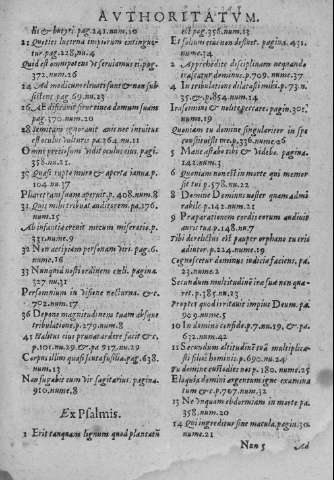 AVTHORITATVM.
Hæ & butyri. pag. 241. num. 10
21 Quoties lucerna impiorum extingue-
tur. pag. 228. nu. 4
Quid est omnipotens vt seruiamus ei. pag.
372. num. 26
24 Ad modicum eleuati sunt & non sub-
sistent. pag. 69. nu. 23
26 Ab
pag. 370. num. 20
28 Semitam ignorauit auis nec intuitus
est oculus vulturis. pa. 164. nu. 11
Omni pretiosum vidit oculus eius. pagi.
358. nu. 21.
30 Quasi rupto muro & aperta ianua. p.
104. nu. 37
Pharetram suam aperuit. p. 408. num. 8
31 Quis mihi tribuat auditorem. pa. 176.
num. 15
Ab infantia creuit mecum miseratio. p.
331. nume. 9
32 Non accipiam personam viri. pag. 6.
nume. 16
33 Nunquid nosti ordinem cæli. pagina.
327. nu. 31
Per somnium in visione nocturna. &c.
702. num. 17
36 Depone magnitudinem tuam absque
tribulatione. p. 279. num. 8
41 Halitus eius prunas ardere facit & c.
p. 101. nu. 29. & pa. 917. nu. 29
Corpus illius quasi scuta fusilia. pag. 638.
num. 13
Non fugabit eum vir sagitarius. pagina.
910. nume. 8
Ex Psalmis.
1 Erit tanquam lignum quod plantatū
est pag. 356. num. 13
Et folium eius non defluet. pagina. 431.
nume. 34
2 Apprehendite disciplinam nequando
irascatur dominus. p. 709. nume. 37
4 In tribulatione dilatasti mihi. p. 73. n.
35. & p. 854. num. 14
Irascimini & nolite peccare. pagin. 301.
nume. 19
Quoniam tu domine singulariter in spe
constituisti me. p. 336. nume. 6
5 Mane astabo tibi & videbo. pagina.
142. num. 3
6 Quoniam non est in morte qui memor
sit tui. p. 578. nu. 22
8 Domine Dominus noster quam admi
rabile. p. 142. num. 21
9 Præparationem cordis eorum audiuit
auris tua. p. 148. nu. 7
Tibi derelictus est pauper orphano tu eris
adiutor. p. 224. nume. 19
Cognoscetur dominus iudicia faciens. pa.
23. nume. 2
Secundum multitudinē iræ suæ non quæ
ret. p. 385. nu. 23
Propter quid irritauit impius Deum. pa.
909. nume. 5
10 In domino confido. p. 7. nu. 19. & pa.
632. num. 42
11 Secundum altitudinē tuā multiplica-
sti filios hominis. p. 690. nu. 24
Tu domine custodies nos p. 180. nume. 25
Eloquia domini argentum igne examina
tum & c. p. 707. num. 32
13 Ne vnquam obdormiam in morte pa.
358. num. 20
14 Qui ingreditur sine macula. pagin. 30.
nume. 21
Nnn 5 Ad